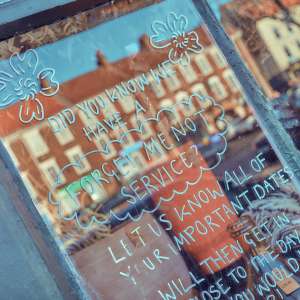 DID YOU KNOW WE
HAVE A
FORGET ME NOT
SERVICE?
LET US KNOW ALL OF
YOUR IMPORTANT DATES
WILL THEN GET IN
TO THE DAY
YOU WOULD